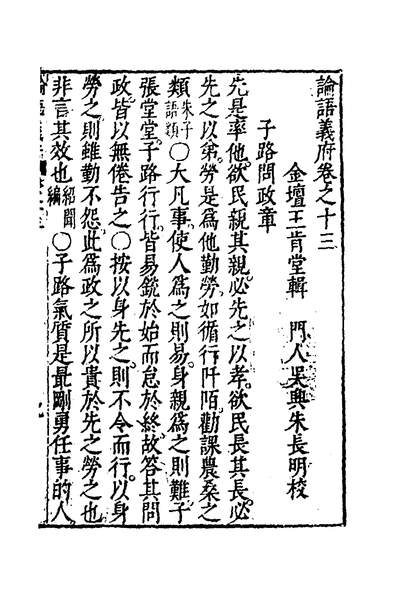 論語義府卷之十三
金壇王肯堂輯　門人吳興朱長明校
子路問政章
先是率他欲民親其親必先之以孝欲民長其長必
先之以弟勞是爲他勤勞如循行阡陌勸課農桑之
類朱子語類○大凡事使人爲之則易身親爲之則難子
張堂堂子路行行皆易銳於始而怠於終故答其問
政皆以無倦告之○按以身先之則不令而行以身
勞之則雖勤不怨此爲政之所以貴於先之勞之也
非言其效也紹聞編○子路氣質是最剛勇任事的人